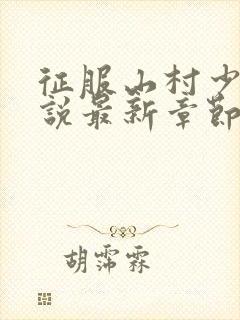 征服山村少
說最新章節
胡霈霖